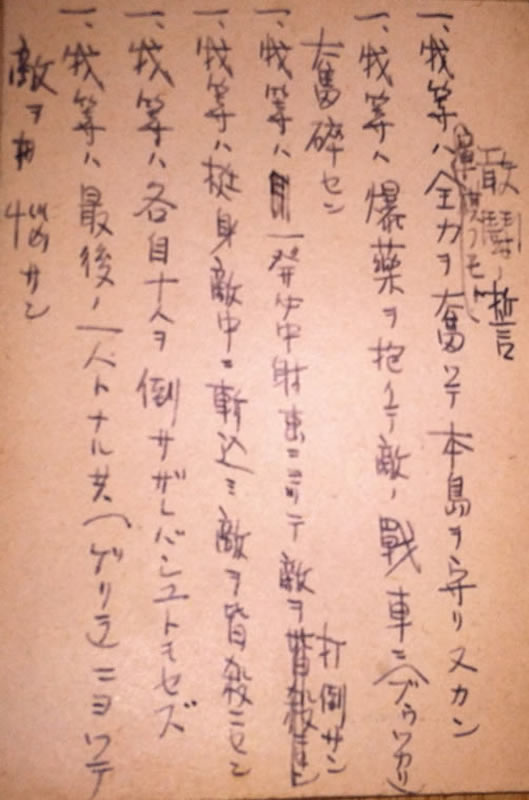 敢闘ノ誓
一、我等ハ全力ヲ奮ツテ本島ヲ守リヌカン
一、我等ハ爆藥ヲ抱イテ敵ノ戰車ニ(ブツカリ)
奮碎セン
一、我等ハ一発必中射撃ニヨツテ敵ヲ打倒サン
一、我等ハ挺身敵中ニ斬込ミ敵ヲ皆殺ニセン
一、我等ハ各自十人ヲ倒サザレバシストモセズ
一、我等ハ最後ノ一人トナル共(ゲリラ)ニヨツテ
敵ヲ悩サン